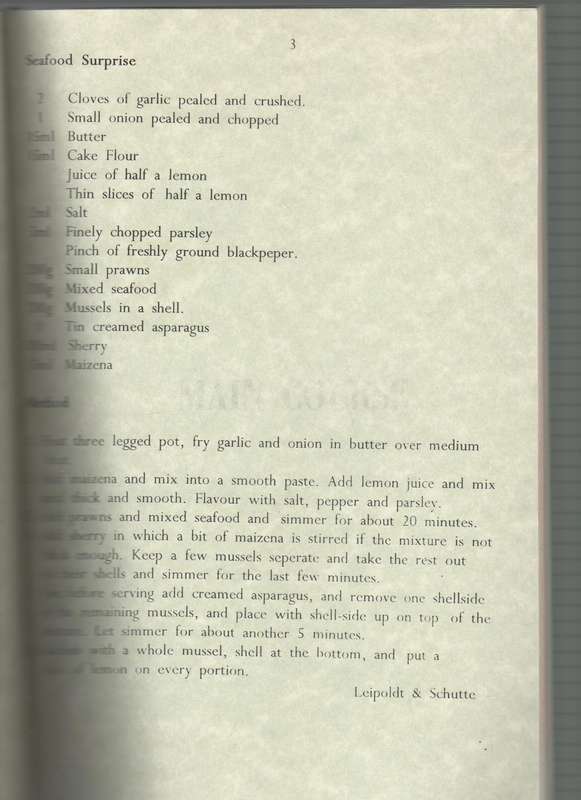 3
Seafood Surprise
2 Cloves of garlic pealed and crushed.
1 Small onion pealed and chopped
Butter
Cake Flour
Juice of half a lemon
Thin slices of half a lemon
Salt
Finely chopped parsley
Pinch of freshly ground blackpeper.
Small prawns
Mixed seafood
Mussels in a shell.
Tin creamed asparagus
Sherry
Maizena
Method
three legged pot, fry garlic and onion in butter over medium
maizena and mix into a smooth paste. Add lemon juice and mix
thick and smooth. Flavour with salt, pepper and parsley.
prawns and mixed seafood and simmer for about 20 minutes.
sherry in which a bit of maizena is stirred if the mixture is not
enough. Keep a few mussels seperate and take the rest out
shells and simmer for the last few minutes.
before serving add creamed asparagus, and remove one shellside
remaining mussels, and place with shell-side up on top of the
Let simmer for about another 5 minutes.
with a whole mussel, shell at the bottom, and put a
of lemon on every portion.
Leipoldt & Schutte